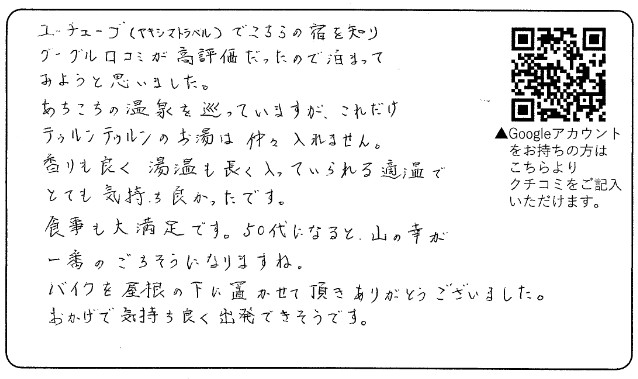 ユーチューブ(ヤキシマトラベル)でこちらの宿を知り
グーグル口コミが高評価だったので泊まって
みようと思いました。
あちこちの温泉を巡っていますが、これだけ
テゥルンテゥルンのお湯は仲々入れません。
香りも良く湯温も長く入っていられる適温で
とても気持ち良かったです。
食事も大満足です。50代になると、山の幸が
一番のごちそうになりますね。
バイクを屋根の下に置かせて頂きありがとうございました。
おかげで気持ち良く出発できそうです。
▲Googleアカウント
をお持ちの方は
こちらより
クチコミをご記入
いただけます。